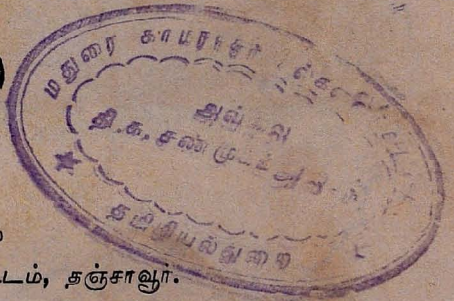 மதுரை காமராசர்
அவ்வை
தி.க. சண்முகம்
தமிழியல்துறை
டம், தஞ்சாவூர்.